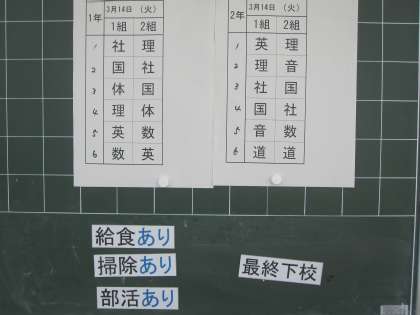 1年 3月14日 (火)
1組 2組
1 社 理
2 国 社
3 体 国
4 理 体
5 英 数
6 数 英
2年 3月14日 (火)
1組 2組
1 英 理
2 理 音
3 社 国
4 国 社
5 音 数
6 道 道
給食あり
掃除あり
部活あり
最終下校